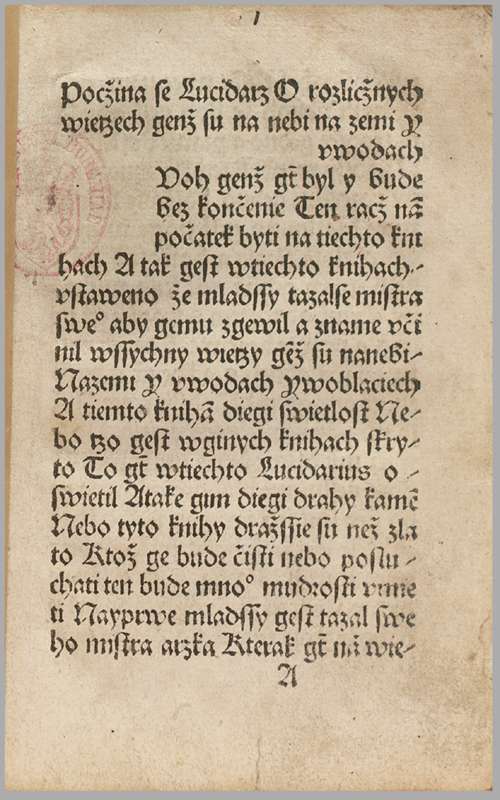 1
Pocžina se Lucidarz O rozličžnych
wietzech genž su na nebi na zemi Y
vwodach
Voh genž gt̃ byl y bude
bez končenie Ten racž nã
počatek byti na tiechto kni
hach A tak gest wtiechto knihach
vstaweno že mladssy tazalse mistra
sweº aby gemu zgewil a zname včĩ
nil wssychny wietzy gẽž su nanebi⸗
Nazemi Y vwodach Ywoblaciech
A tiemto knihã diegi swietlost Ne⸗
bo tzo gest wginych knihach skry⸗
to To gt̃ wtiechto Lucidarius o⸗
swietil Atake gim diegi drahy kamẽ
Nebo tyto knihy dražssie su než zla
to Ktož ge bude čisti nebo poslu⸗
chati ten bude mnoº mudrosti vmie
ti Nayprwe mladssy gest tazal swe
ho mistra arzka Kterak gt̃ nã wie⸗
A